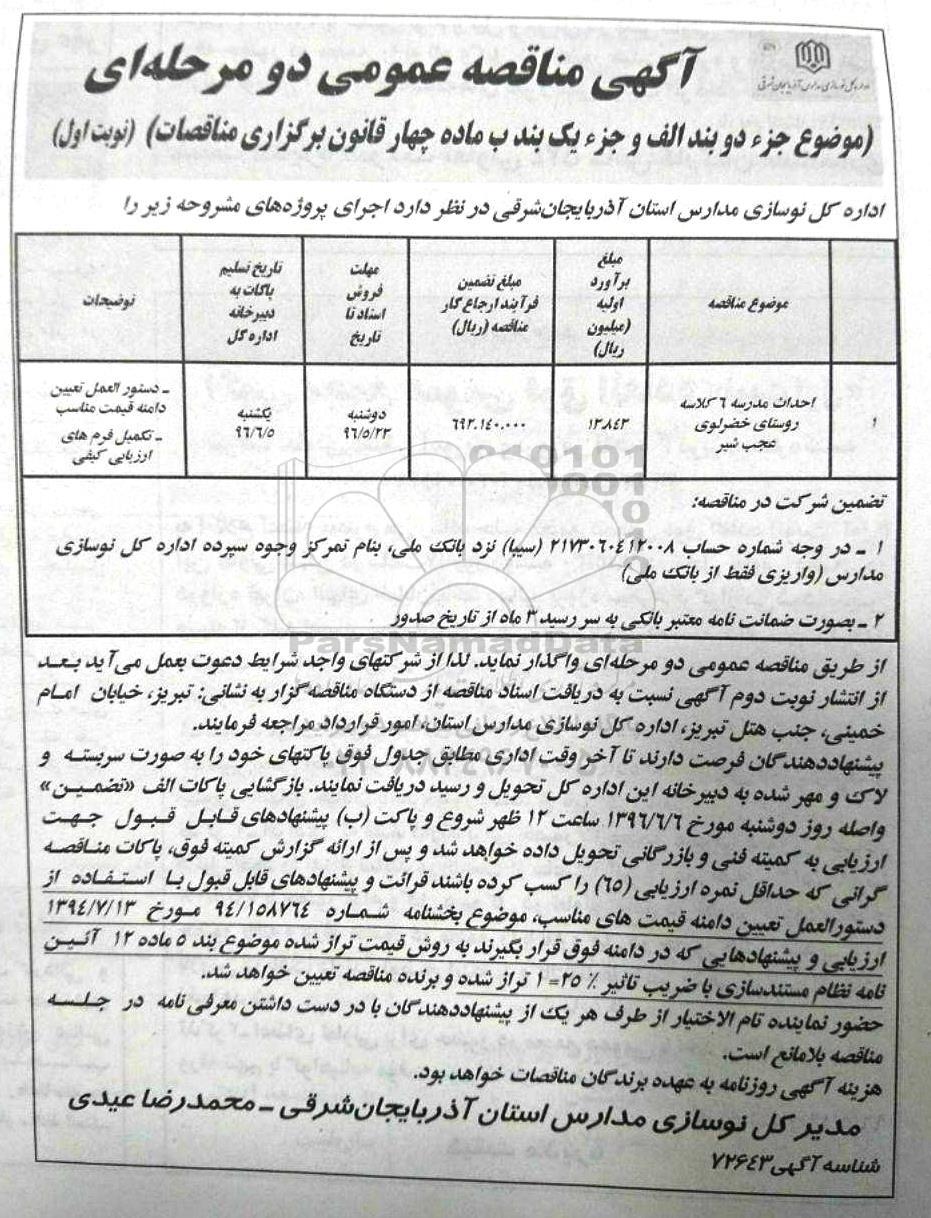 اداره کل نوسازی مدارس آذربایجان شرقی
آگهی مناقصه عمومی دو مرحله‌ای
(موضوع جزء دو بند الف و جزء یک بند ب ماده چهار قانون برگزاری مناقصات) (نوبت اول)
اداره کل نوسازی مدارس استان آذربایجان‌شرقی در نظر دارد اجرای پروژه‌های مشروحه زیر را
موضوع مناقصه
مبلغ
برآورد
اولیه
(میلیون
ریال)
مبلغ تضمین
فرآیند ارجاع کار
مناقصه (ریال)
مهلت
فروش
اسناد تا
تاریخ
تاریخ تسلیم
پاکات به
دبیرخانه
اداره کل
توضیحات
۱
احداث مدرسه ۶ کلاسه
روستای خضرلوی
عجب شیر
۱۳۸۴۳
۶۹۲.۱۴۰.۰۰۰
دوشنبه
۹۶/۵/۲۳
یکشنبه
۹۶/۶/۵
ـ دستور العمل تعیین
دامنه قیمت مناسب
ـ تکمیل فرم های
ارزیابی کیفی
تضمین شرکت در مناقصه:
۱ ـ در وجه شماره حساب ۲۱۷۳۰۶۰۴۱۲۰۰۸ (سیبا) نزد بانک ملی، بنام تمرکز وجوه سپرده اداره کل نوسازی
مدارس (واریزی فقط از بانک ملی)
۲ ـ بصورت ضمانت نامه معتبر بانکی به سر رسید ۳ ماه از تاریخ صدور
ParsNamadData
از طریق مناقصه عمومی دو مرحله‌ای واگذار نماید. لذا از شرکتهای واجد شرایط دعوت بعمل می‌آید بعد
از انتشار نوبت دوم آگهی نسبت به دریافت اسناد مناقصه از دستگاه مناقصه‌گزار به نشانی: تبریز، خیابان امام
خمینی، جنب هتل تبریز، اداره کل نوسازی مدارس استان، امور قرارداد مراجعه فرمایند.
پیشنهاددهندگان فرصت دارند تا آخر وقت اداری مطابق جدول فوق پاکتهای خود را به صورت سربسته و
لاک و مهر شده به دبیرخانه این اداره کل تحویل و رسید دریافت نمایند. بازگشایی پاکات الف «تضمین»
واصله روز دوشنبه مورخ ۱۳۹۶/۶/۶ ساعت ۱۲ ظهر شروع و پاکت (ب) پیشنهادهای قابل قبول جهت
ارزیابی به کمیته فنی و بازرگانی تحویل داده خواهد شد و پس از ارائه گزارش کمیته فوق، پاکات مناقصه
گرانی که حداقل نمره ارزیابی (۶۵) را کسب کرده باشند قرائت و پیشنهادهای قابل قبول با استفاده از
دستورالعمل تعیین دامنه قیمت های مناسب، موضوع بخشنامه شماره ۹۴/۱۵۸۷۶۴ مورخ ۱۳۹۴/۷/۱۳
ارزیابی و پیشنهادهایی که در دامنه فوق قرار بگیرند به روش قیمت تراز شده موضوع بند ۵ ماده ۱۲ آئین
نامه نظام مستندسازی با ضریب تاثیر ٪ ۲۵= ۱ تراز شده و برنده مناقصه تعیین خواهد شد.
حضور نماینده تام الاختیار از طرف هر یک از پیشنهاددهندگان با در دست داشتن معرفی نامه در جلسه
مناقصه بلامانع است.
هزینه آگهی روزنامه به عهده برندگان مناقصات خواهد بود.
مدیر کل نوسازی مدارس استان آذربایجان‌شرقی ـ محمدرضا عیدی
شناسه آگهی ۷۲۶۴۳